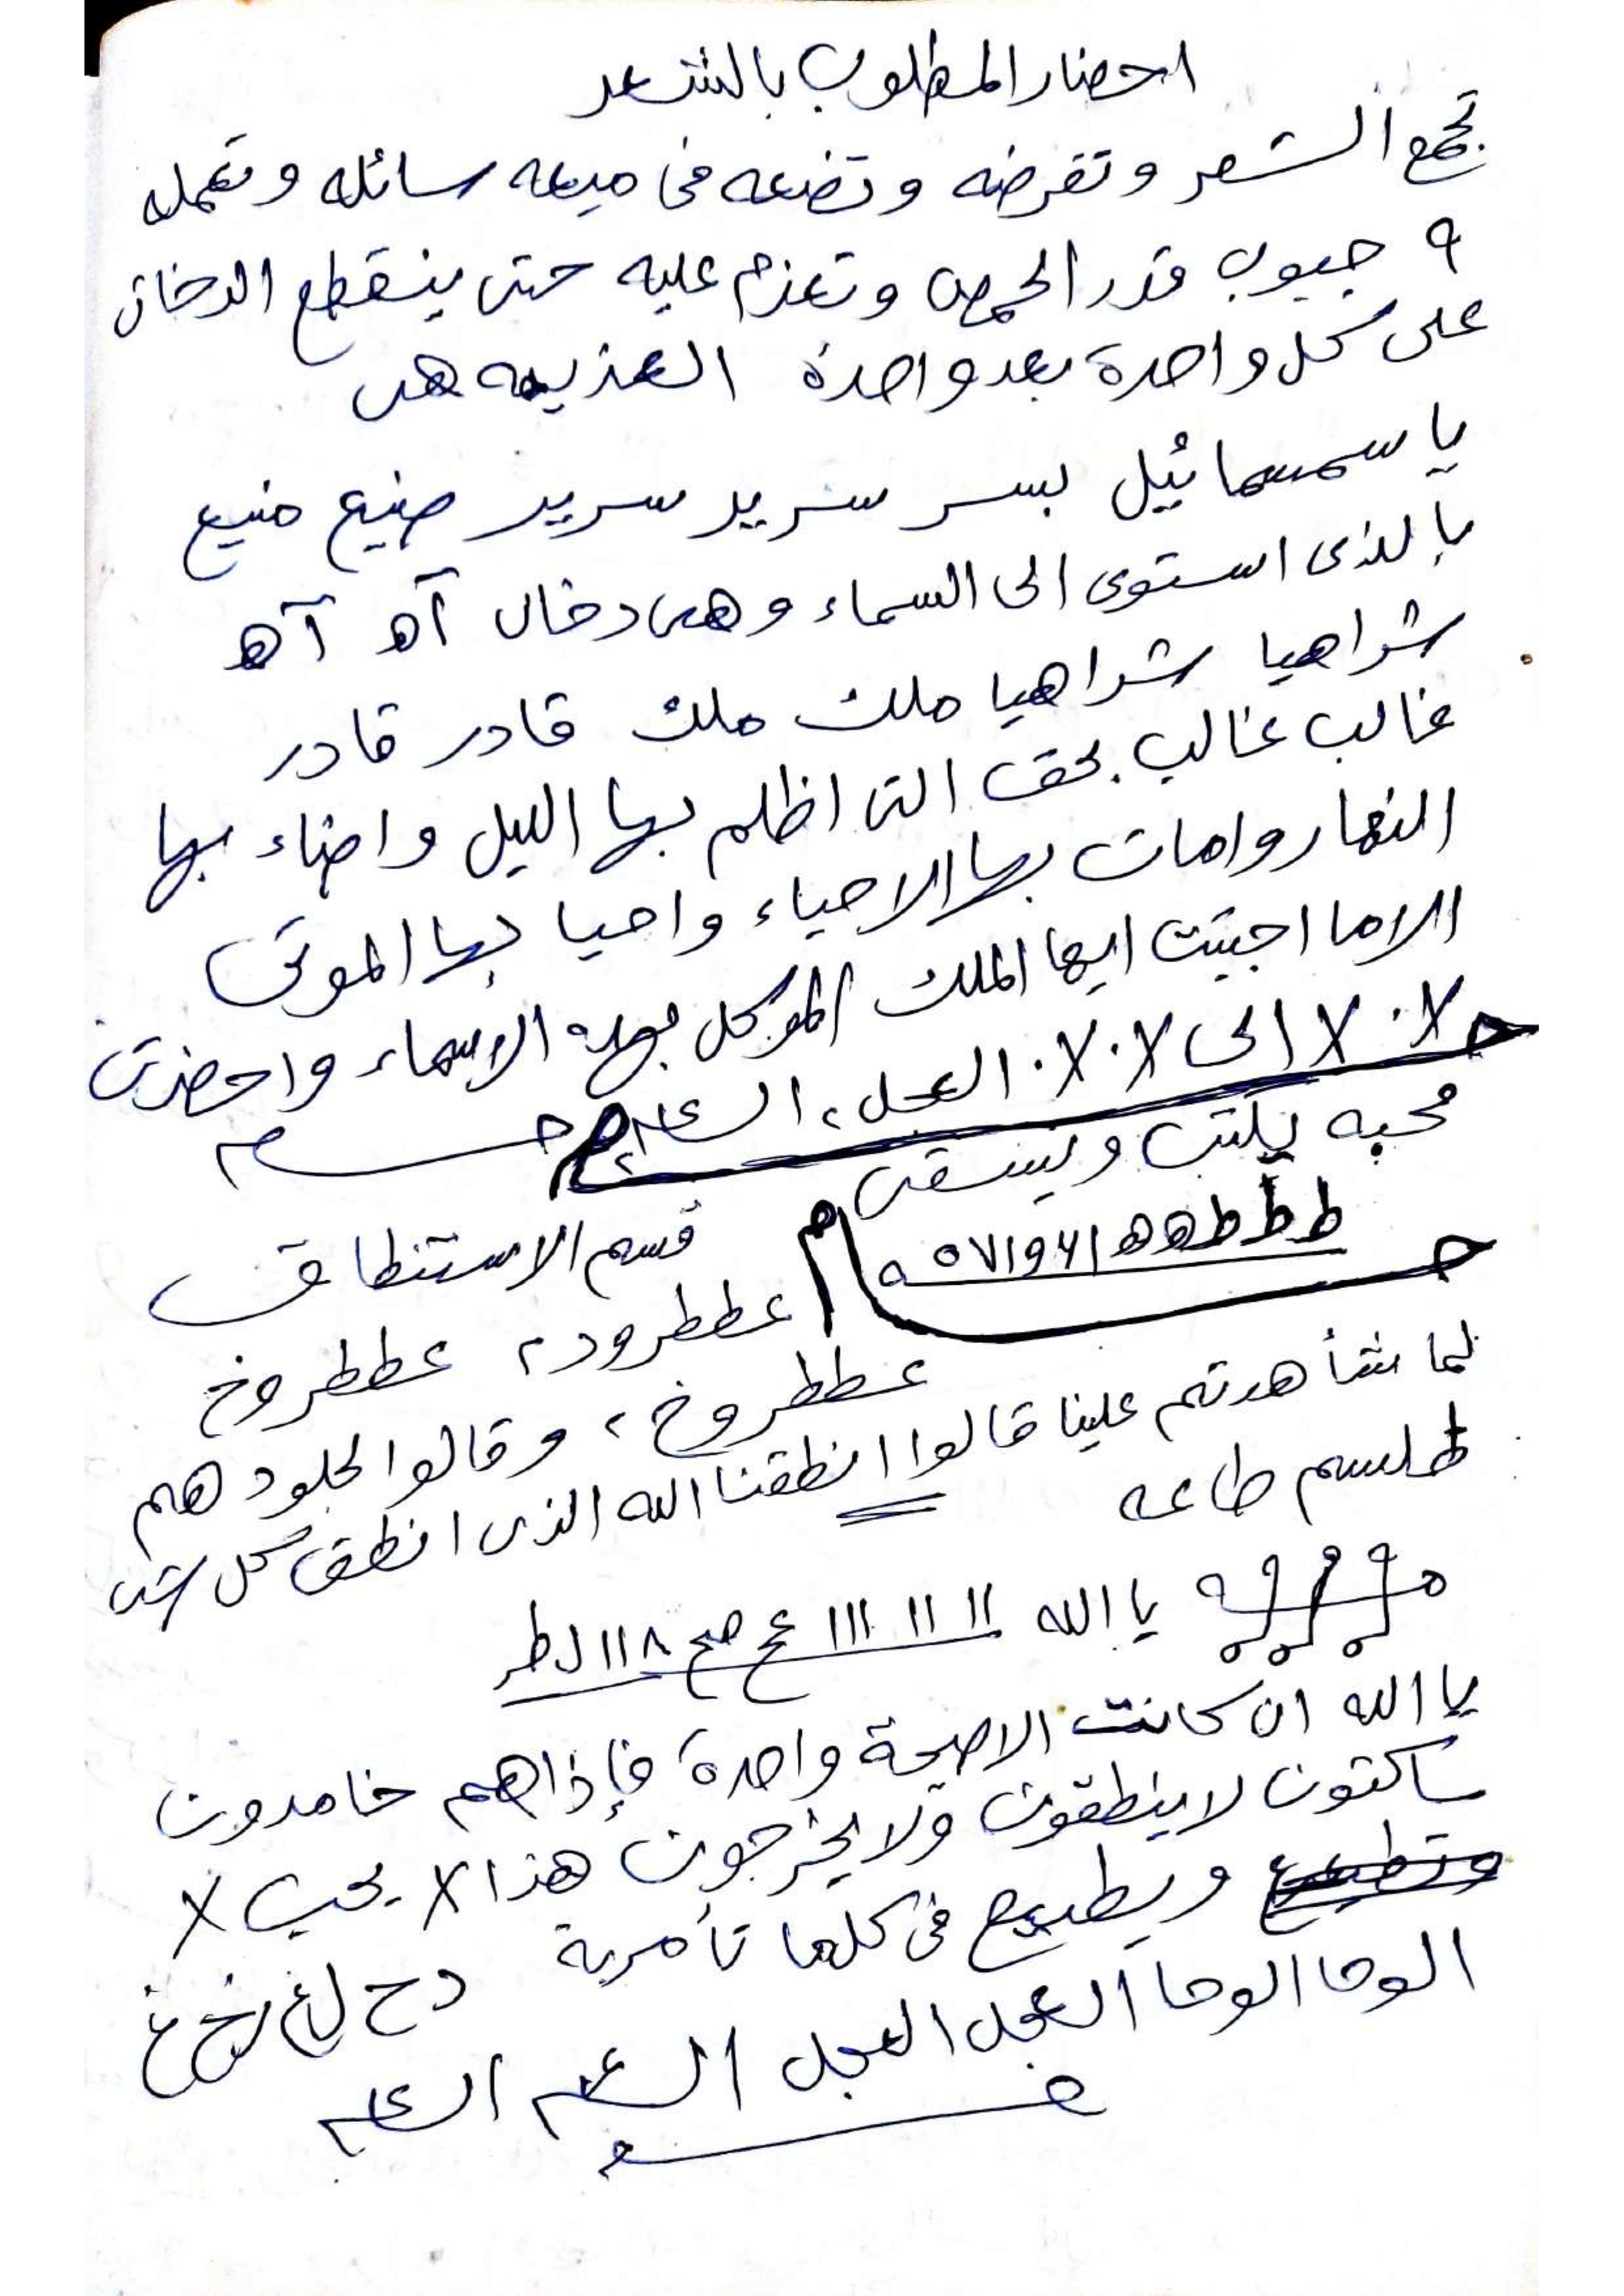 احضار المطلوب بالشعر
تجمع الشعر وتقرضه وتضعه فى ميعه سائله وتعمله
٩ حبوب قدر الحمص وتعزم عليه حتى ينقطع الدخان
على كل واحدة بعد واحدة العزيمه هى
يا سمسمائيل بسر سريد سريد صنيع منيع
بالذى استوى الى السماء وهى دخان آه آه
شراهيا شراهيا ملك ملك قادر قادر
غالب غالب بحق التى اظلم بها الليل واضاء بها
النهار وامات بها الاحياء واحيا بها الموتى
الا ما اجبت ايها الملك الموكل بهذه الاسماء واحضرت
الى العجل ٢ الساعه ٢
محبه يكتب ويسقى
ط ط ط ه ه
قسم الاستنطاق
عططرود ٢ عططروخ
عططروخ ٢ وقالوا لجلودهم
لما شأهدتم علينا قالوا انطقنا الله الذى انطق كل شى
طلسم طاعه
يا الله ١١ ١١ ١١١ عج صح ١١٨
يا الله ان كانت الاصيحة واحدة فإذاهم خامدون
ساكتون لا ينطقون ولا يخرجون هذا X يحب X
ويطيع فى كلما تأمربة
الوحا الوحا العجل العجل الساعه الساعه